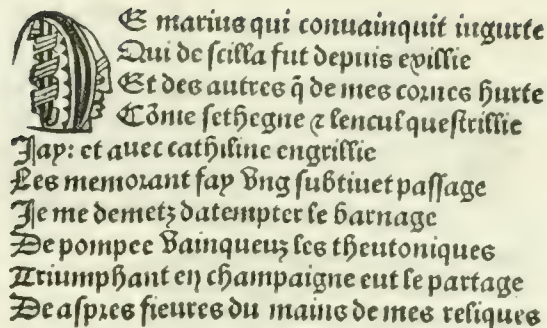 De marius qui conuainquit iugurte
Qui de scilla fut depuis exillie
Et des autres q̃ de mes cornes hurte
Cõme sethegne ⁊ lencul questrillie
Jay: et auec cathiline engrillie
Les memorant fay vng subtiuet passage
Je me demetz datempter le barnage
De pompee vainqueur les theutoniques
Triumphant en champaigne eut le partage
De aspres fieures du mains de mes reliques